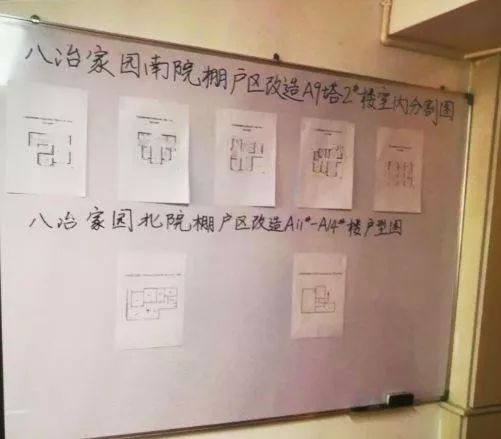 八冶家园南院棚户区改造A9塔2#楼室内分割图
八冶家园北院棚户区改造A11#-A14#楼户型图